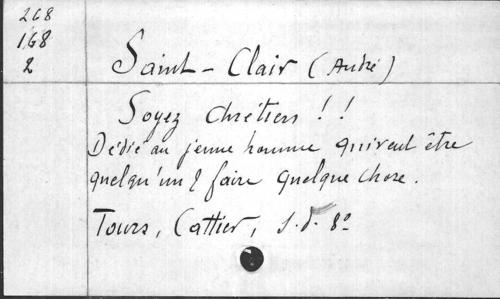 268
168
2
Saint-Clair (André)
Soyez chrétiens !!
Dédié au jeune homme qui veut être
quelqu'un & faire quelque chose.
Tours, Cattier, s.d. 8º